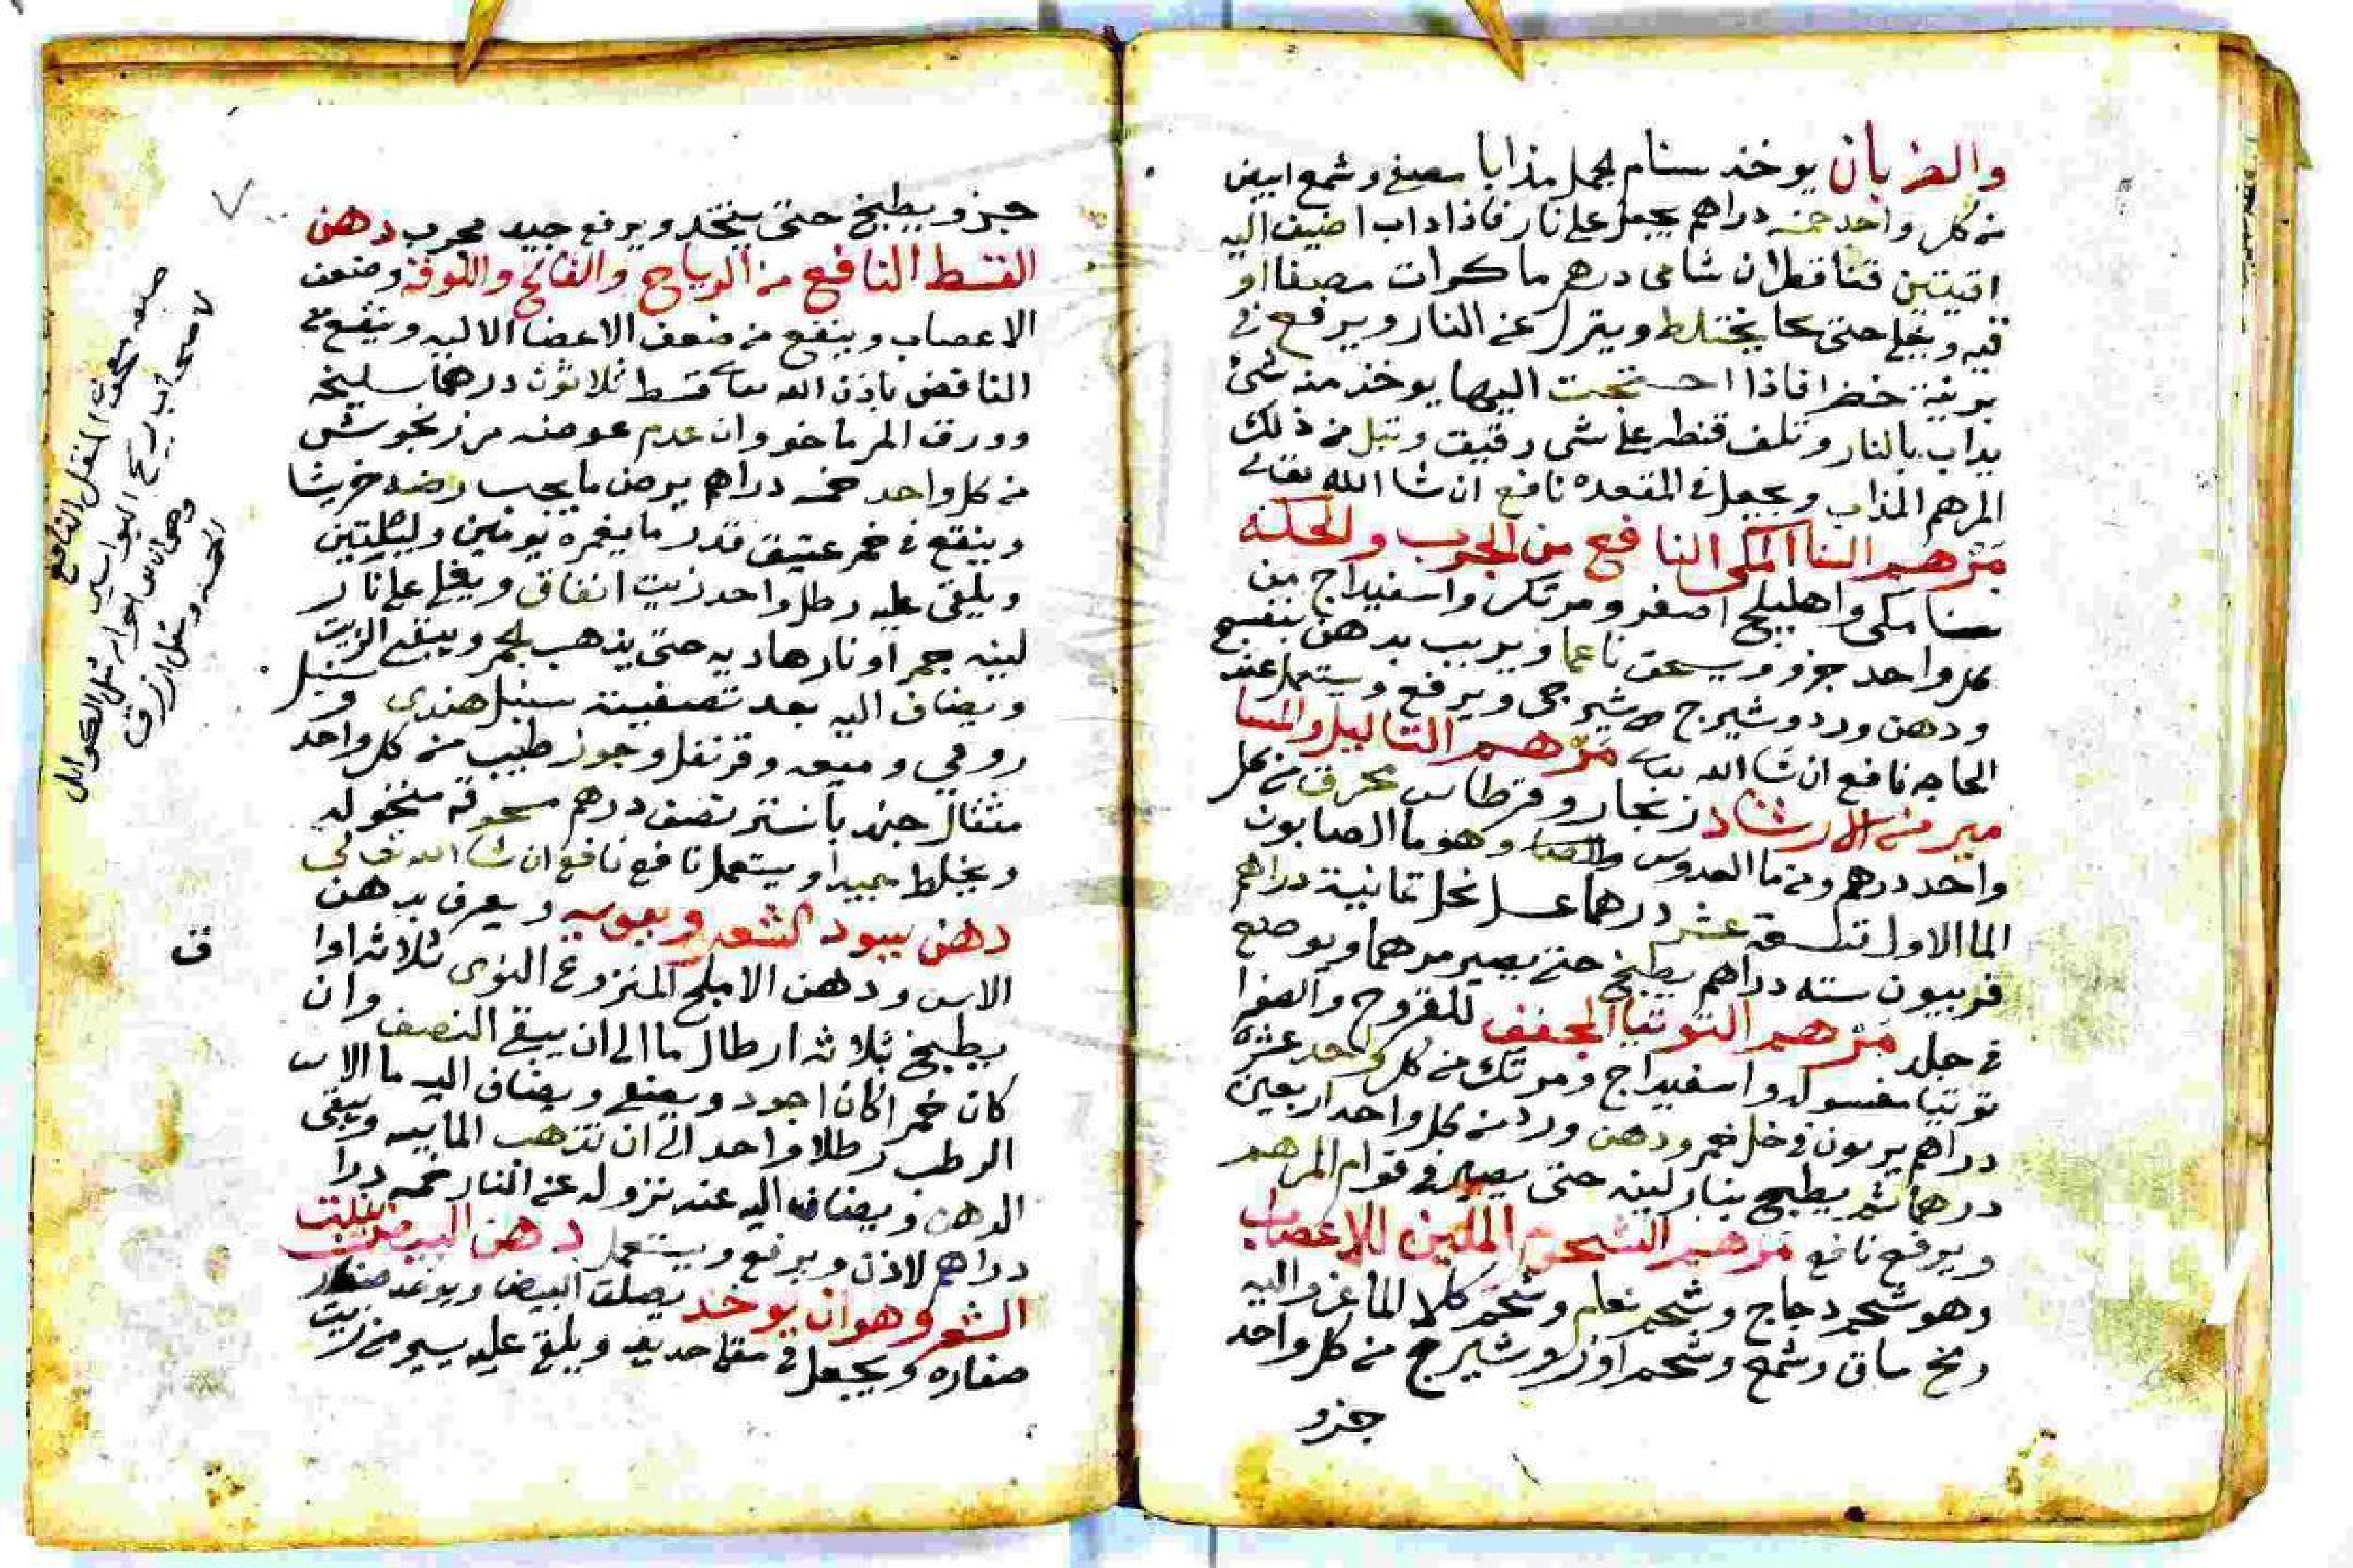 والضربان يوخذ سنام لجمل مذابا مصفى وشمع ابيض
من كل واحد خمسه دراهم يجعل على نار فاذا داب اضيف اليه
اقيتين قنا قطران شامى درهم ما كرات مصفا او
فيه ويغلى حتى يختلط وينزل عن النار ويرفع فى
برنية خضرا فاذا احتجت اليها يوخذ منه شئ
يداب بالنار وتلف قطنه على شى رقيق وتبل من ذلك
المرهم المذاب ويجعل فى المقعده نافع ان شا الله تعالى
مرهم السنا المكى النافع من الجرب والحكه
سنا مكى واهليلج اصفر ومرتك واسفيداج من
كل واحد جزو ويسحق ناعما ويربب بدهن بنفسج
ودهن ورد وشيرج ويرفع ويستعمل عند
الحاجه نافع ان شا الله تعالى مرهم التاليل والمسا
مير من الارشاد زنجار وقرطاس محرق من كل
واحد درهم ومن ما العدوس وهو ما الصابون
الما الاول تسعة عشر درهما عسل نحل ثمانية دراهم
فربيون سته دراهم يطبخ حتى يصير مرهما ويوضع
فى جلد مرهم التوتيا المجفف للقروح والصفرا
توتيا مغسوله واسفيداج ومرتك من كل واحد عشرة
دراهم يربون فى خل خمر ودهن ورد من كل واحد اربعين
درهما ثم يطبخ بنار لينه حتى يصير فى قوام المرهم
ويرفع نافع مرهم الشحوم الملين للاعصاب
وهو شحم دجاج وشحم نعام وشحم كلا الماعز واليه
ومخ ساق وشمع وشحم اوز وشيرج من كل واحد
جزو
جزو ويطبخ حتى يتخد ويرفع جيد مجرب دهن
القسط النافع من الرياح والفالج واللوقه وضعف
الاعصاب وينفع من ضعف الاعضا الاليه وينفع من
النافض باذن الله تعالى قسط ثلاثون درهما سليخه
وورق المرماخو وان عدم عوضه مرزنجوش
من كل واحد خمسه دراهم يرض ما يجب رضه خريشا
وينقع فى خمر عتيق قدر ما يغمره يومين وليلتين
ويلقى عليه رطل واحد زيت انفاق ويغلى على نار
لينه جمر او نار هاديه حتى يذهب لخمر ويبقى الزيت
ويضاف اليه بعد تصفيته سنبل هندى وسنبل
رومي وميعه وقرنفل وجوز طيب من كل واحد
مثقال جندبادستر نصف درهم مسحوقه منخوله
ويخلط جيدا ويستعمل نافع نافع ان شا الله تعالى
دهن يسود الشعر ويقويه ويعرف بدهن
الاس ودهن الاملج المنزوع النوى ثلاثه اوا
يطبخ بثلاثه ارطال ما الى ان يبقى النصف وان
كان خمرا كان اجود ويصفى ويضاف اليه ما الاس
الرطب رطلا واحد الى ان تذهب الماييه ويبقى
الدهن ويضاف اليه عند نزوله عن النار خمسه درا
دراهم لاذن ويرفع ويستعمل دهن البيض ينبت
الشعر وهو ان يوخذ يصلق البيض ويوخذ صفار
صفاره ويجعل فى مقلا حديد ويلقى عليه يسير من زيت
صفه سفوف المقل النافع
لاصحاب ريح البواسير